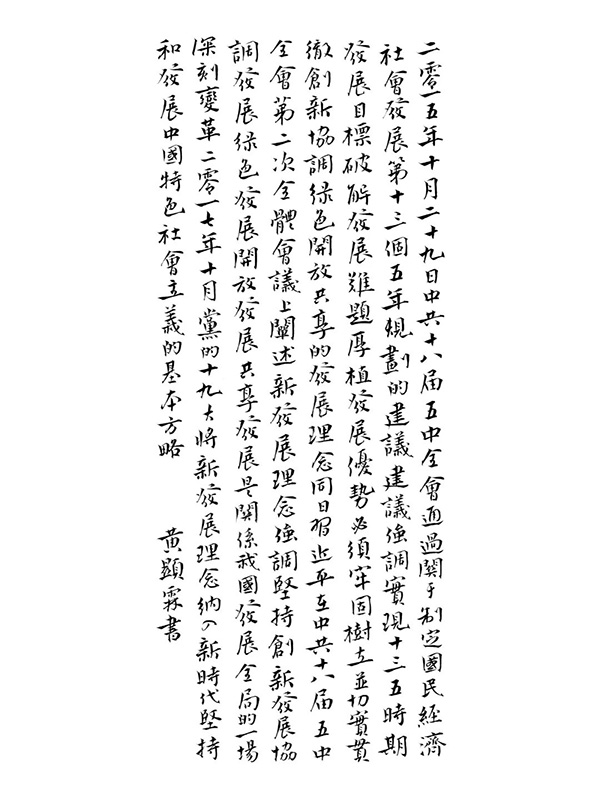 二零一五年十月二十九日中共十八届五中全會通過關于制定國民經濟
社會發展第十三個五年規劃的建議建議強調實現十三五時期
發展目標破解發展難題厚植發展優勢必須牢固樹立並切實貫
徹創新協調綠色開放共享的發展理念同日習近平在中共十八届五中
全會第二次全體會議上闡述新發展理念強調堅持創新發展協
調發展綠色發展開放發展共享發展是關係我國發展全局的一場
深刻變革二零一七年十月黨的十九大將新發展理念納入新時代堅持
和發展中國特色社會主義的基本方略 黄顯霖書